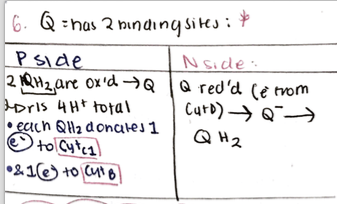 6. Q = has 2 binding sites: *
P side
2 QH2 are ox'd → Q
4 H+ total
• each QH2 donates 1
e- to Cyt C1
• & 1 e- to Cyt B
N side:
Q red'd (e- from
Cyt B) → Q- →
QH2